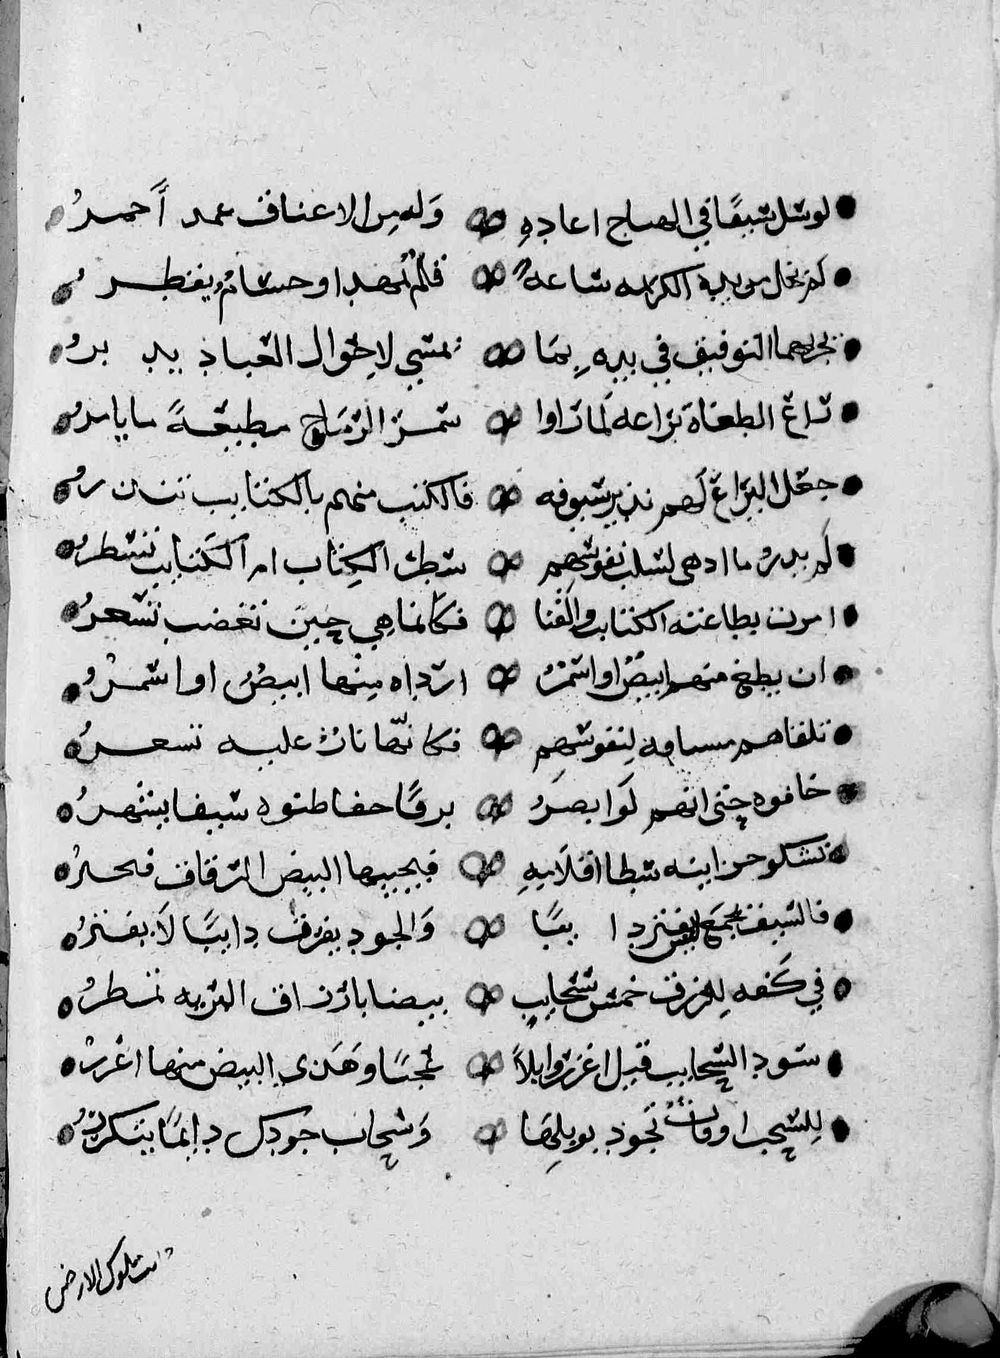 لو سل سيفا في الهياج اعاديه وله من الاعناق غمد احمر
لم تخل من يده الكريمه ساعة قلم لهيد او حسام يفطر
يجريهما التوفيق في يده بما تمشي لاحوال العباد يد بر
راع الطغاة يراعه لما راوا سمر الرماح مطيعة ما يامر
جعل اليراع لهم نذير سيوفه فالكتب منهم بالكتايب تنذر
لم يدر ما ادهى لسلب نفوسهم سطر الكتاب ام الكتايب تسطر
امرت بطاعته الكتاب والقنا فكانما هي حين تغضب تشعر
ان يطغ منهم ابيض او اسمر ارداه منها ابيض او اسمر
تلقاهم بسامه لنفوسهم فكانها نار عليه تسعر
خافوه حتى انهم لو ابصروا برقا خفا ظنوه سيفا يشهر
تشكو خزاينه سطا اقلامه فيجيبها البيض الرقاق فتحسر
فالسيف يجمع ليفتر دايبا والجود يفرق دايبا لا يفتر
في كفه للرزق خمس سحايب بيضا بارزاق البريه تمطر
سود السحايب قيل اغزر وابلا عجبا وهذي البيض منها اغزر
للسحب اوقات تجود بوبلها وسحاب جودك دايما يتكرر
ملوك الارض